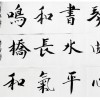 琴書和鳴
曲水長橋
心平氣和